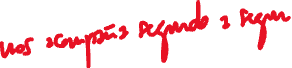 nos acompaña segundo a segun